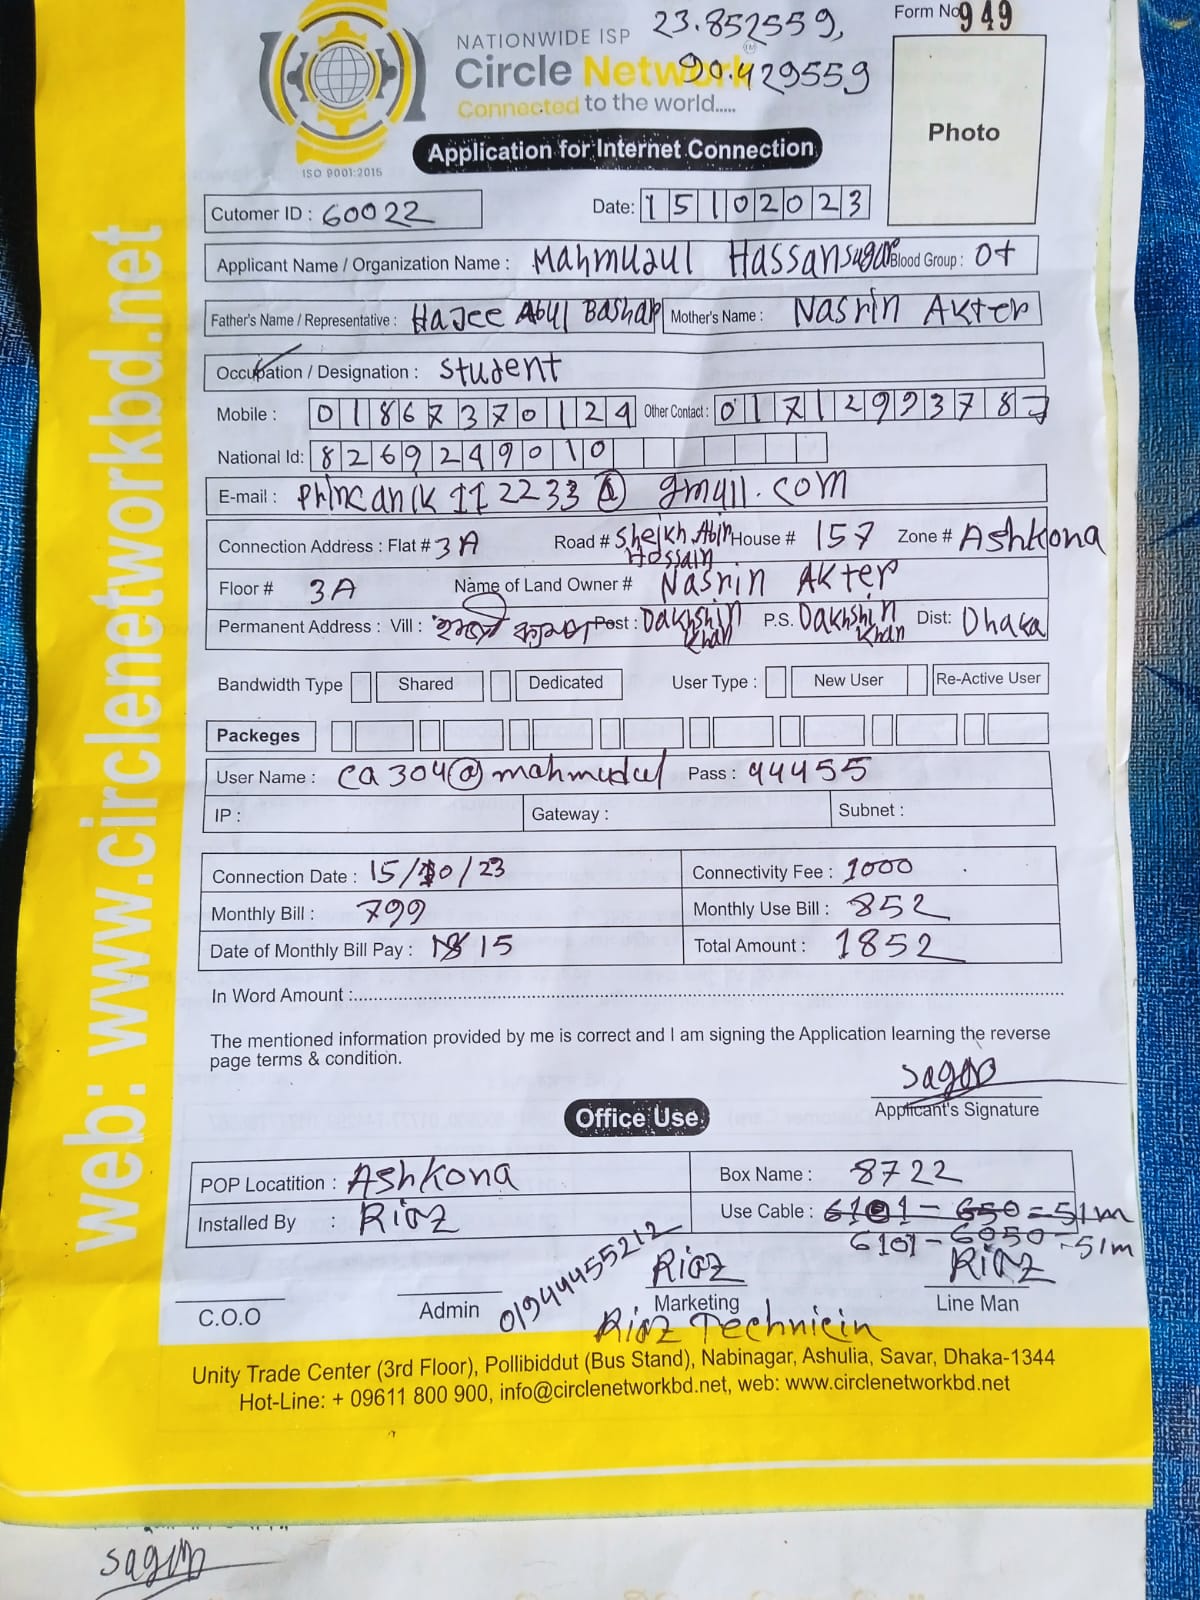 Form No 949
23.852559,
90.429559
NATIONWIDE ISP
Circle Network
Connected to the world.....
ISO 9001:2015
Photo
Application for Internet Connection
Cutomer ID : 60022 Date: 15102023
Applicant Name / Organization Name : Mahmudul Hassan sagor Blood Group : O+
Father's Name / Representative : Hajee Abul Bashar Mother's Name : Nasrin Akter
Occupation / Designation : Student
Mobile : 01867370124 Other Contact : 0171299378
National Id: 8269249010
E-mail : Princanik112233@gmail.com
Connection Address : Flat # 3A Road # Sheikh Abir Hossain House # 157 Zone # Ashkona
Floor # 3A Name of Land Owner # Nasrin Akter
Permanent Address : Vill : Post : Dakhshin Khan P.S. Dakhshin Khan Dist: Dhaka
Bandwidth Type Shared Dedicated User Type : New User Re-Active User
Packeges
User Name : ca304@mahmudul Pass : 44455
IP : Gateway : Subnet :
Connection Date : 15/10/23 Connectivity Fee : 1000
Monthly Bill : 799 Monthly Use Bill : 852
Date of Monthly Bill Pay : 15 Total Amount : 1852
In Word Amount :
The mentioned information provided by me is correct and I am signing the Application learning the reverse
page terms & condition.
sagor
Applicant's Signature
Office Use
POP Locatition : Ashkona Box Name : 8722
Installed By : Riaz Use Cable : 6101 - 650 = 51m
6101 - 6050 - 51m
01944455212 Riaz Riaz
C.O.O Admin Marketing Line Man
Riaz Technicin
Unity Trade Center (3rd Floor), Pollibiddut (Bus Stand), Nabinagar, Ashulia, Savar, Dhaka-1344
Hot-Line: + 09611 800 900, info@circlenetworkbd.net, web: www.circlenetworkbd.net
web: www.circlenetworkbd.net
sagor